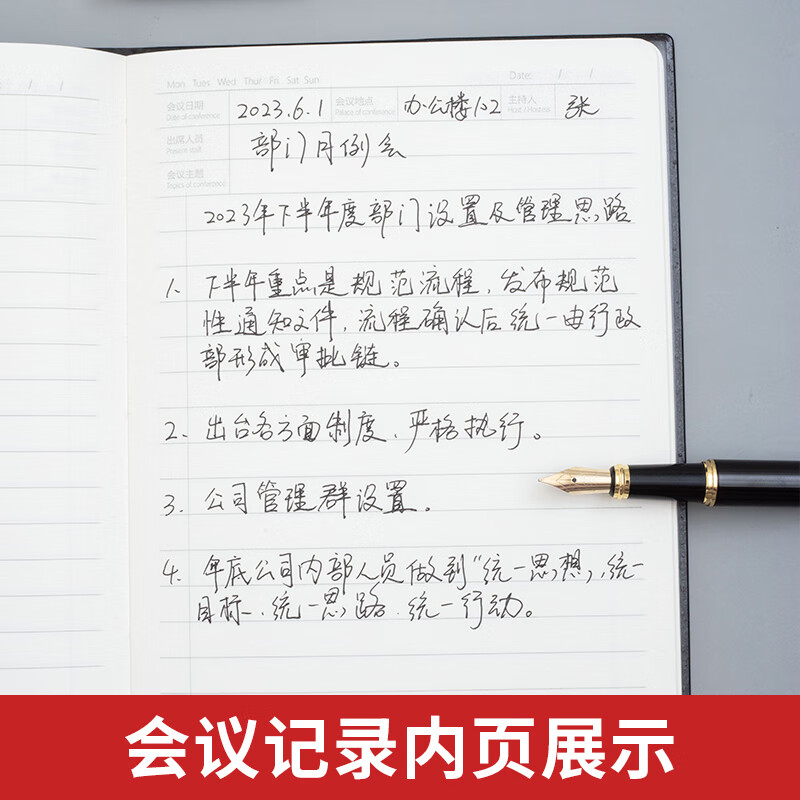 Mon Tues Wed Thur Fri Sat Sun Date: / /
会议日期 Date of conference 2023.6.1 会议地点 Palace of conference 办公楼102 主持人 张
出席人员 Present staff 部门月例会
会议主题 Topics of conference
2023年下半年度部门设置及管理思路
1. 下半年重点是规范流程,发布规范
性通知文件,流程确认后统一由行政
部形成审批链。
2. 出台各方面制度、严格执行。
3. 公司管理群设置。
4. 年底公司内部人员做到"统一思想,统一
目标、统一思路、统一行动。
会议记录内页展示